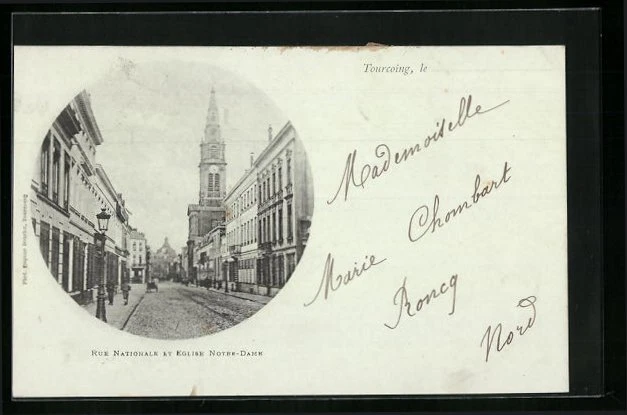 Tourcoing, le
Mademoiselle
Chombart
Marie
Roncq
Nord
RUE NATIONALE ET EGLISE NOTRE-DAME
Phot.